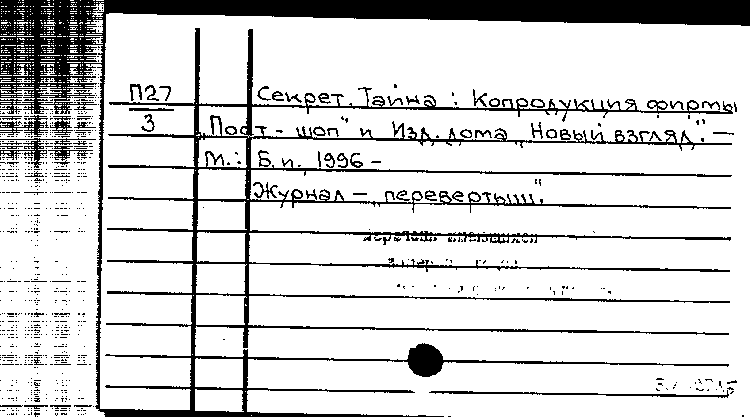 П27
3
Секрет. Тайна : Копродукция фирмы
„Пост - шоп" и Изд. дома „Новый взгляд". —
М.: Б. и., 1996 -
Журнал — „перевертыш".